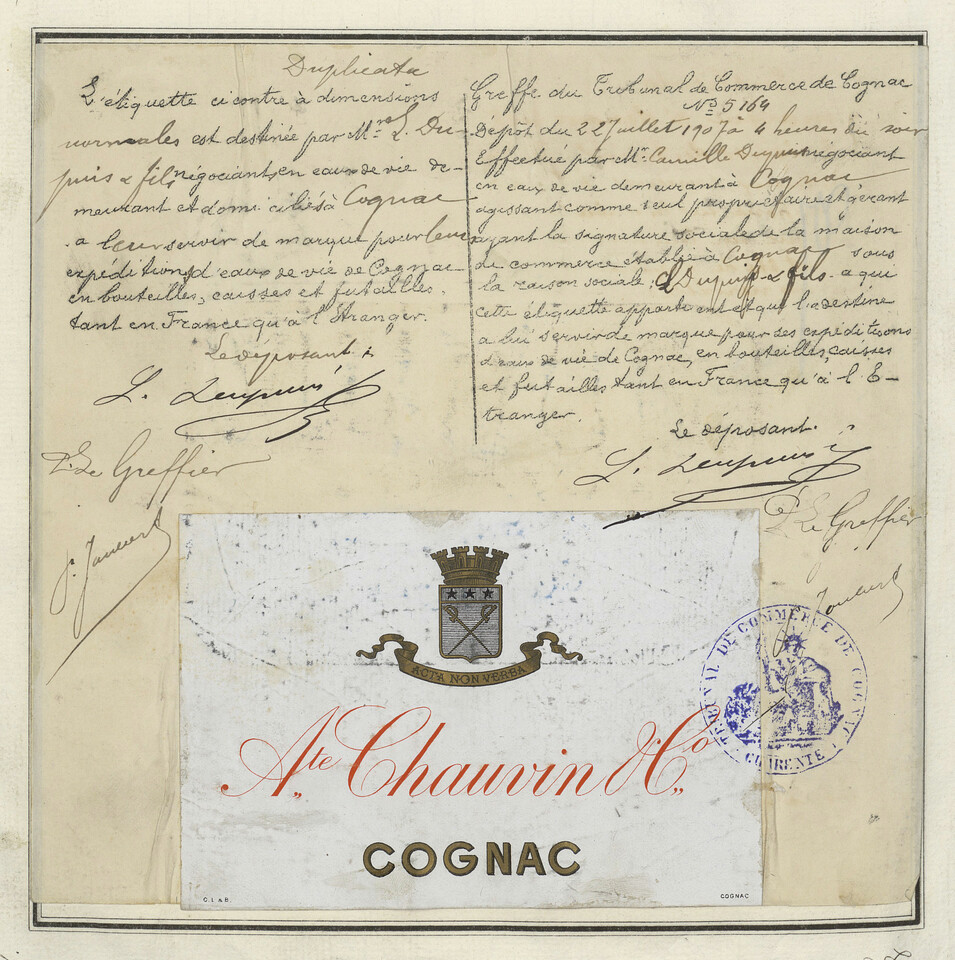 Duplicata
L'étiquette ci contre à dimensions
normales est destinée par Mr L. Du-
puis & fils négociants en eaux de vie de-
meurant et domiciliés à Cognac
a leur servir de marque pour leurs
expéditions d'eaux de vie de Cognac
en bouteilles, caisses et futailles,
tant en France qu'à l'Etranger.
Le déposant :
L. Dupuis
Le Greffier
Greffe du Tribunal de Commerce de Cognac
No 5164
Dépôt du 22 Juillet 1907 à 4 heures du soir
Effectué par Mr. Camille Dupuis négociant
en eaux de vie demeurant à Cognac
agissant comme seul propriétaire et gérant
ayant la signature sociale de la maison
de commerce établie à Cognac sous
la raison sociale: L Dupuis & fils a qui
cette étiquette appartient et qui la destine
a lui servir de marque pour ses expéditions
d'eaux de vie de Cognac, en bouteilles, caisses
et futailles tant en France qu'à l'E-
tranger.
Le déposant.
L. Dupuis
Le Greffier
ACTA NON VERBA
Ate Chauvin & Co
COGNAC
C. I. & B.
COGNAC
TRIBUNAL DE COMMERCE DE COGNAC
CHARENTE